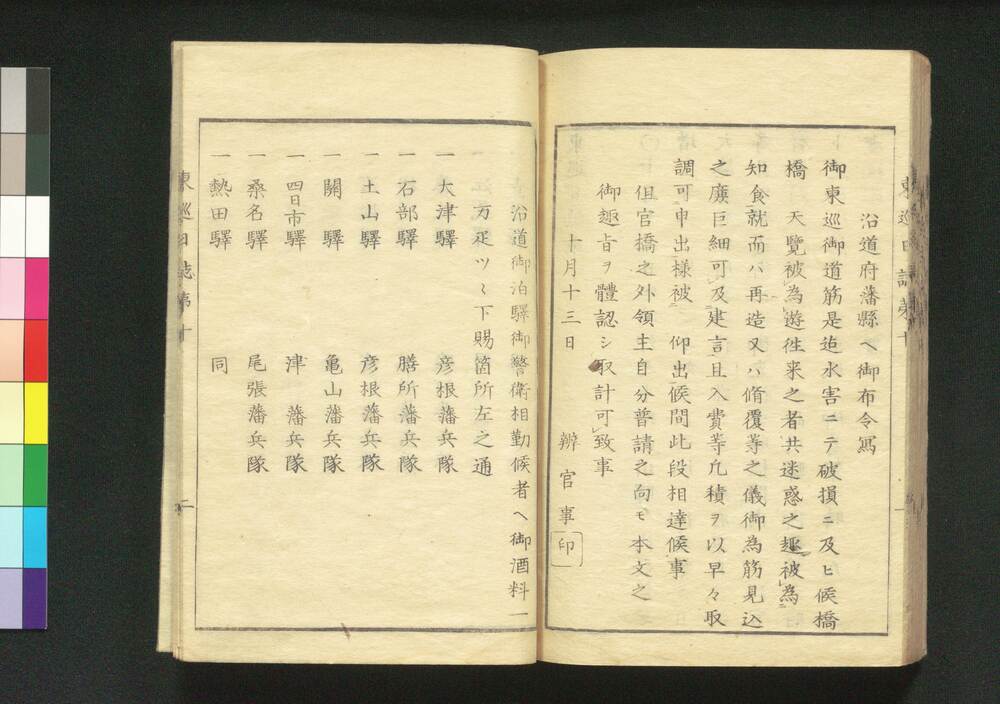 沿道府藩縣ヘ御布令寫
御東巡御道筋是迠水害ニテ破損ニ及ヒ候橋
橋　天覽被爲遊徃来之者共迷惑之趣被爲
知食就而ハ再造又ハ脩覆等之儀御為筋見込
之廉巨細可及建言且入費等凢積ヲ以早々取
調可申出様被　仰出候間此段相達候事
但官橋之外領主自分普請之向モ本文之
御趣旨ヲ體認シ取計可致事
十月十三日
辨官事 印
沿道御泊驛御警衛相勤候者ヘ御酒料一
万疋ツヽ下賜箇所左之通
一大津驛　彦根藩兵隊
一石部驛　膳所藩兵隊
一土山驛　彦根藩兵隊
一關　驛　亀山藩兵隊
一四日市驛　津　藩兵隊
一桑名驛　尾張藩兵隊
一熱田驛　同
東巡日誌第十
二